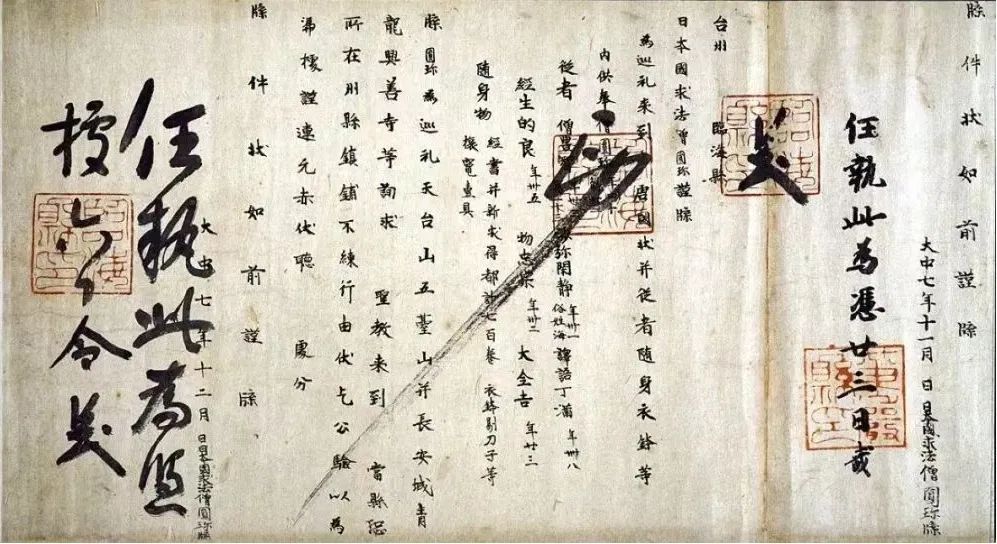 牒件狀如前謹牒
大中七年十一月 日日本國求法僧圓珍牒
任執此為憑廿三日
台州 臨海縣
日本國求法僧圓珍謹牒
為巡礼来到 唐國状并従者随身衣鉢等
内供奉僧圓
従者 僧 閑静 年卅一 俗姓海 譯語丁滿 年卌八
経生的良 年卅五 物忠宗 年卅二 大全吉 年廿三
随身物 経書并新求得都計七百巻 衣鉢剃刀子等
竈壷具
牒圓珍為巡礼天台山五臺山并長安城青
龍興善寺等詢求 聖教来到 當縣恐
所在州縣鎮鋪不練行由伏乞公驗以為
憑據謹連元赤伏聽 處分
牒件狀如前謹牒
大中七年十二月 日日本國求法僧圓珍牒
任執此為憑
據 令